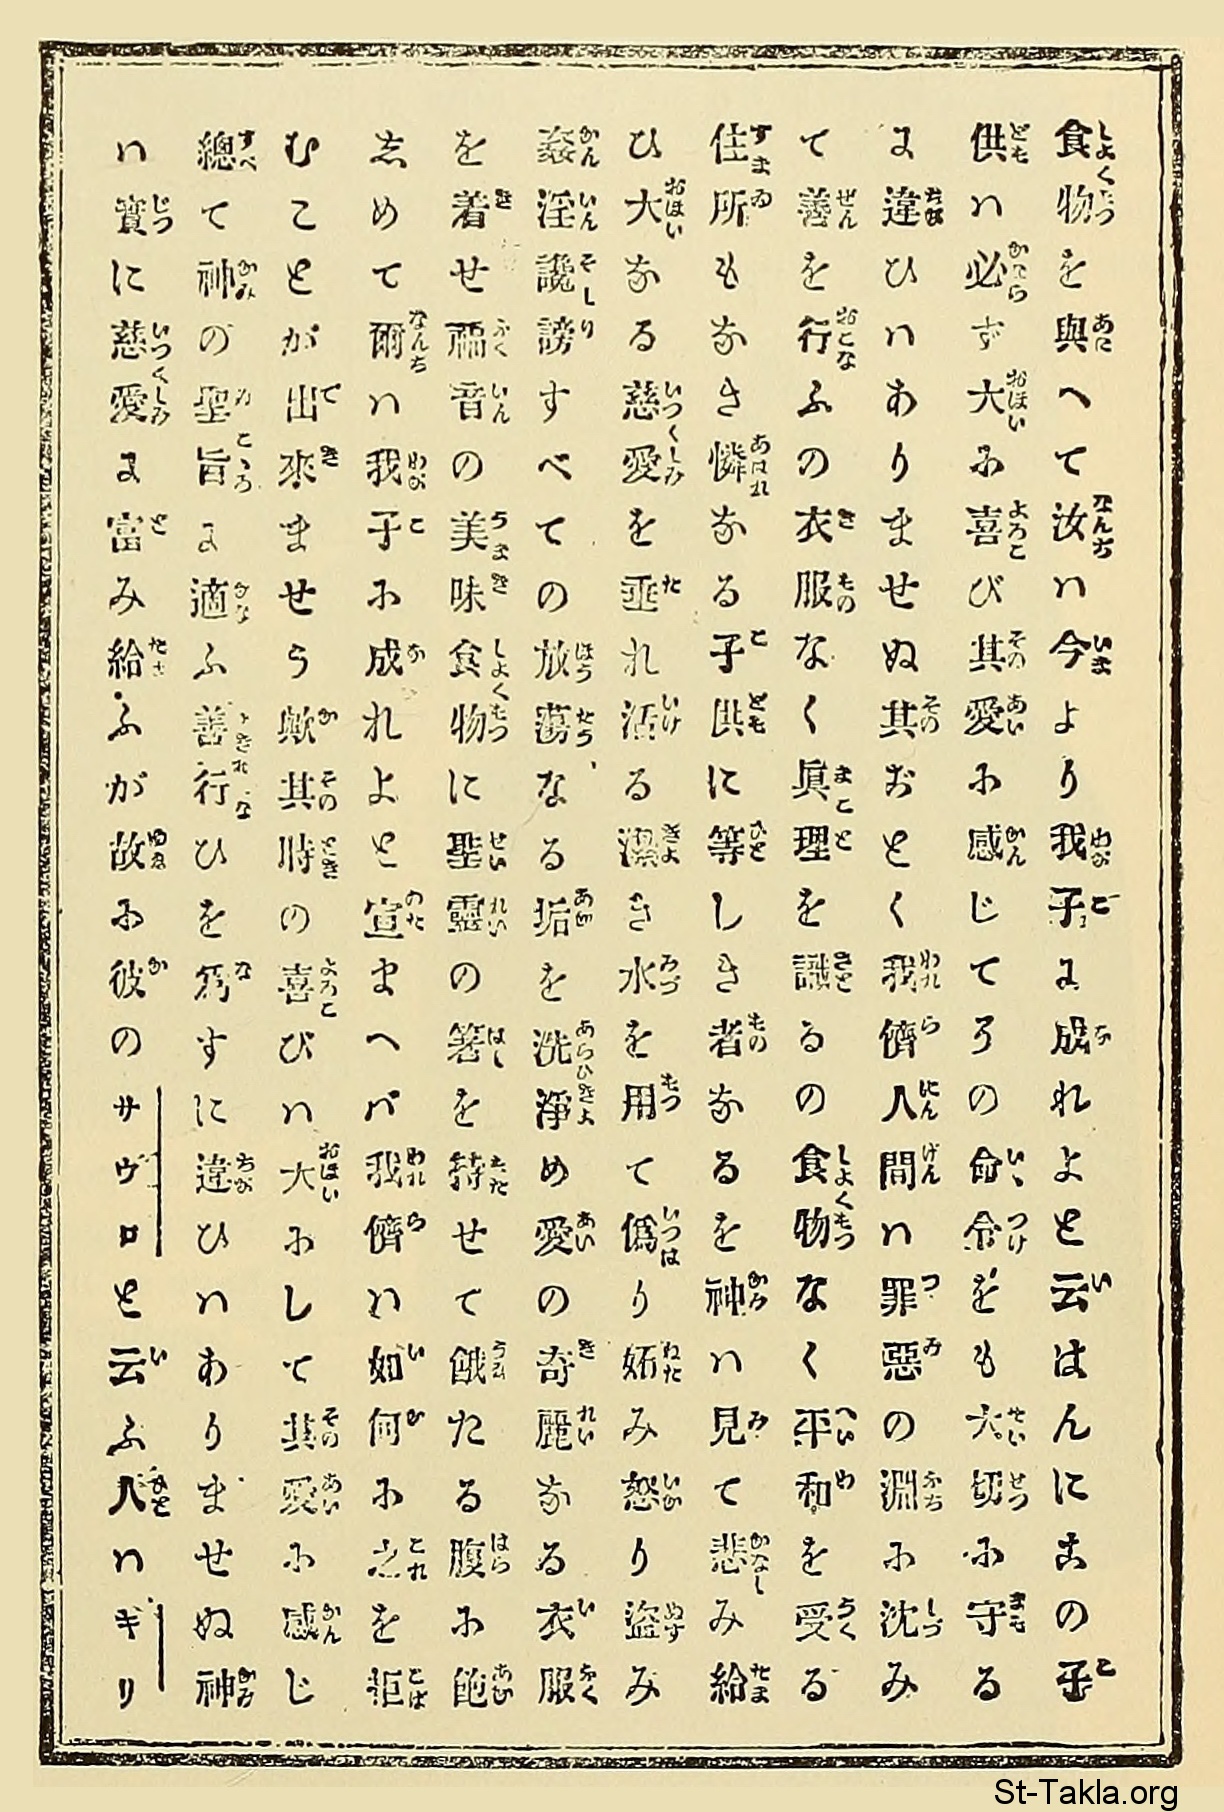 食物を與へて汝ハ今より我子に成れよと云はんにこの子
供ハ必ず大に喜び其愛に感じてその命令をも大切に守る
に違ひハありませぬ其おとく我儕人間ハ罪惡の淵に沈み
て善を行ふの衣服なく眞理を識るの食物なく平和を受る
住所もなき憐なる子供に等しき者なるを神ハ見て悲み給
ひ大なる慈愛を垂れ活る潔き水を用て僞り妬み怒り盜み
姦淫讒謗すべての放蕩なる垢を洗淨め愛の奇麗なる衣服
を着せ福音の美味食物に聖靈の箸を持せて餓たる腹に飽
志めて爾ハ我子に成れよと宣まへバ我儕ハ如何に之を拒
むことが出來ませう歟其時の喜びハ大にして其愛に感じ
總て神の聖旨に適ふ善行ひを爲すに違ひハありませぬ神
ハ實に慈愛に富み給ふが故に彼のサヴロと云ふ人ハギリ
St-Takla.org